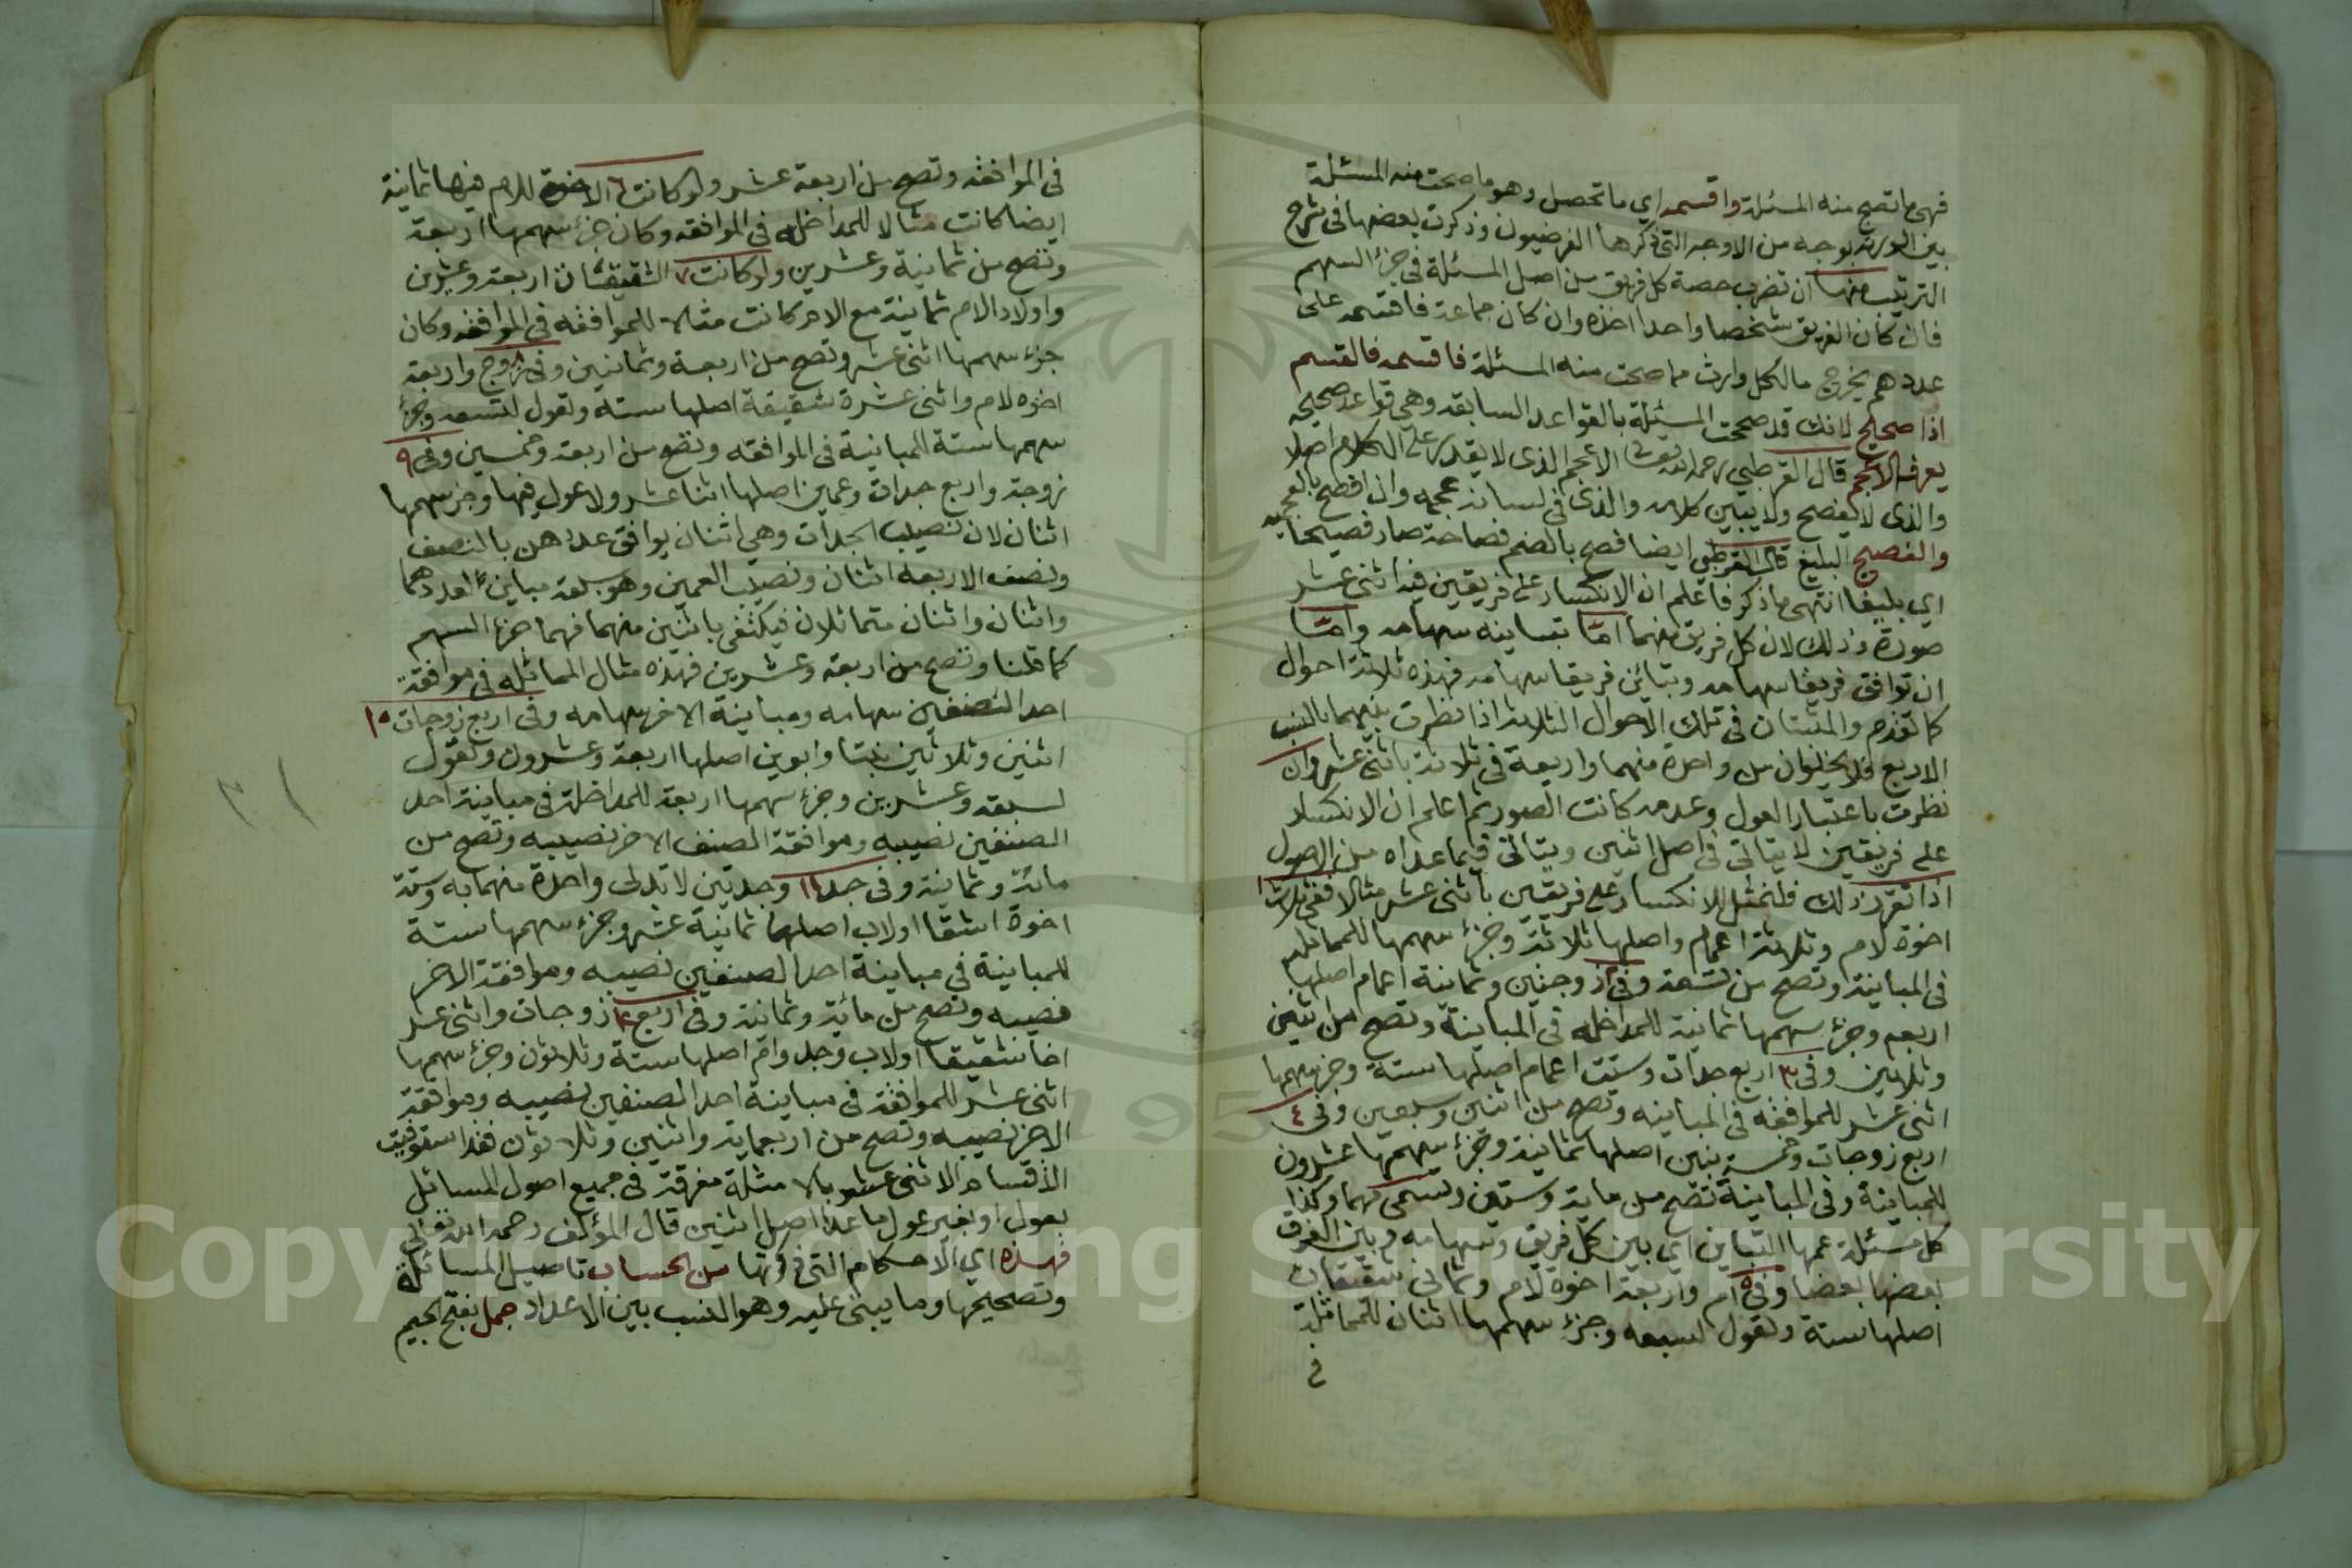 فهي ما تصح منه المسئلة واقسمه اي ما تحصل وهو ما صحت منه المسئلة
بين الورثة بوجه من الاوجه التي ذكرها الفرضيون وذكرت بعضها في شرح
الترتيب منها ان تضرب حصة كل فريق من اصل المسئلة في جزء السهم
فان كان الفريق شخصا واحدا اخذه وان كان جماعة فاقسمه على
عددهم يخرج ما لكل وارث مما صحت منه المسئلة فاقسمه فالقسم
اذا صحيح لانك قد صححت المسئلة بالقواعد السابقه وهي قواعد صحيحه
يعرفه الاعجم قال القرطبي رحمه الله تعالى الاعجم الذي لا يقدر على الكلام اصلا
والذي لا يفصح ولا يبين كلامه والذي في لسانه عجمه وان افصح بالعجميه
والفصيح البليغ قال القرطبي ايضا فصح بالضم فصاحة صار فصيحا
اي بليغا انتهى ما ذكر فاعلم ان الانكسار على فريقين فيه اثنى عشر
صورة وذلك لان كل فريق منهما اما تباينه سهامه واما
ان توافق فريقا سهامه وتباين فريقا سهامه فهذه ثلاثة احوال
كما تقدم والمثبتان في تلك الاحوال الثلاثة اذا نظرت بينهما بالنسب
الاربع فلا يخلوان من واحدة منهما واربعة في ثلاثة باثنى عشر وان
نظرت باعتبار العول وعدمه كانت الصور ثم اعلم ان الانكسار
على فريقين لا يتاتى في اصل اثنين ويتاتى فيما عداه من الاصول
اذا تقرر ذلك فلنمثل للانكسار على فريقين باثنى عشر مثالا ففي ثلاث ١
اخوة لام وثلاثة اعمام واصلها ثلاثة وجزء سهمها للمماثله
في المباينة وتصح من تسعة وفي ٢ زوجتين وثمانية اعمام اصلها
اربعه وجزء سهمها ثمانية للمداخله في المباينة وتصح من اثنين
وثلاثين وفي ٣ اربع جدات وستة اعمام اصلها ستة وجزء سهمها
اثنى عشر للموافقه في المباينه وتصح من اثنين وسبعين وفي ٤
اربع زوجات وخمسة بنين اصلها ثمانية وجزء سهمها عشرون
للمباينة وفي المباينة تصح من ماية وستين وتسمى صما وكذا
كل مسئلة عمها التباين اي بين كل فريق وسهامه وبين الفرق
بعضها بعضا وفي ٥ ام واربعة اخوة لام وثماني شقيقات
اصلها ستة وتعول لسبعه وجزء سهمها اثنان للمماثلة
في
في الموافقه وتصح من اربعة عشر ولو كانت ٦ الاخوة للام فيها ثمانية
ايضا كانت مثالا للمداخله في الموافقه وكان جزء سهمها اربعة
وتصح من ثمانية وعشرين ولو كانت ٧ الشقيقات اربعة وعشرين
واولاد الام ثمانية مع الام كانت مثالا للموافقه في الموافقه وكان
جزء سهمها اثنى عشر وتصح من اربعة وثمانين وفي ٨ زوج واربعة
اخوه لام واثنى عشرة شقيقة اصلها ستة وتعول لتسعه وجزء
سهمها ستة للمباينة في الموافقه وتصح من اربعة وخمسين وفي ٩
زوجة واربع جدات وعمين اصلها اثنا عشر ولا عول فيها وجزء سهمها
اثنان لان نصيب الجدات وهي اثنان يوافق عددهن بالنصف
ونصف الاربعه اثنان ونصيب العمين وهو سبعة مباين لعددهما
واثنان واثنان متماثلان فيكتفى باثنين منهما فهما جزء السهم
كما قلنا وتصح من اربعة وعشرين فهذه مثال المماثله في موافقة
احد الصنفين سهامه ومباينة الاخر سهامه وفي اربع زوجات ١٠
اثنين وثلاثين بنتا وابوين اصلها اربعة وعشرون وتعول
لسبعه وعشرين وجزء سهمها اربعة للمداخلة في مباينة احد
الصنفين نصيبه وموافقة الصنف الاخر نصيبه وتصح من
مائة وثمانية وفي جد ١١ وجدتين لا تدلى واحدة منهما به وستة
اخوة اشقا او لاب اصلها ثمانية عشر وجزء سهمها ستة
للمباينة في مباينة احد الصنفين نصيبه وموافقة الاخر
نصيبه وتصح من مائة وثمانية وفي اربع ١٢ زوجات واثنى عشر
اخا شقيقا او لاب وجد وام اصلها ستة وثلاثون وجزء سهمها
اثنى عشر للموافقة في مباينة احد الصنفين نصيبه وموافقة
الاخر نصيبه وتصح من اربعماية واثنين وثلاثون فقد استوفيت
الاقسام الاثنى عشر بالامثلة مفرقة في جميع اصول المسائل
بعول او بغير عول ما عدا اصل اثنين قال المؤلف رحمه الله تعالى
فهذه اي الاحكام التي ذكرتها من الحساب تاصيل المسائل
وتصحيحها وما يبنى عليه وهو النسب بين الاعداد جمل بفتح الجيم
Copyright © King Saud University
1957